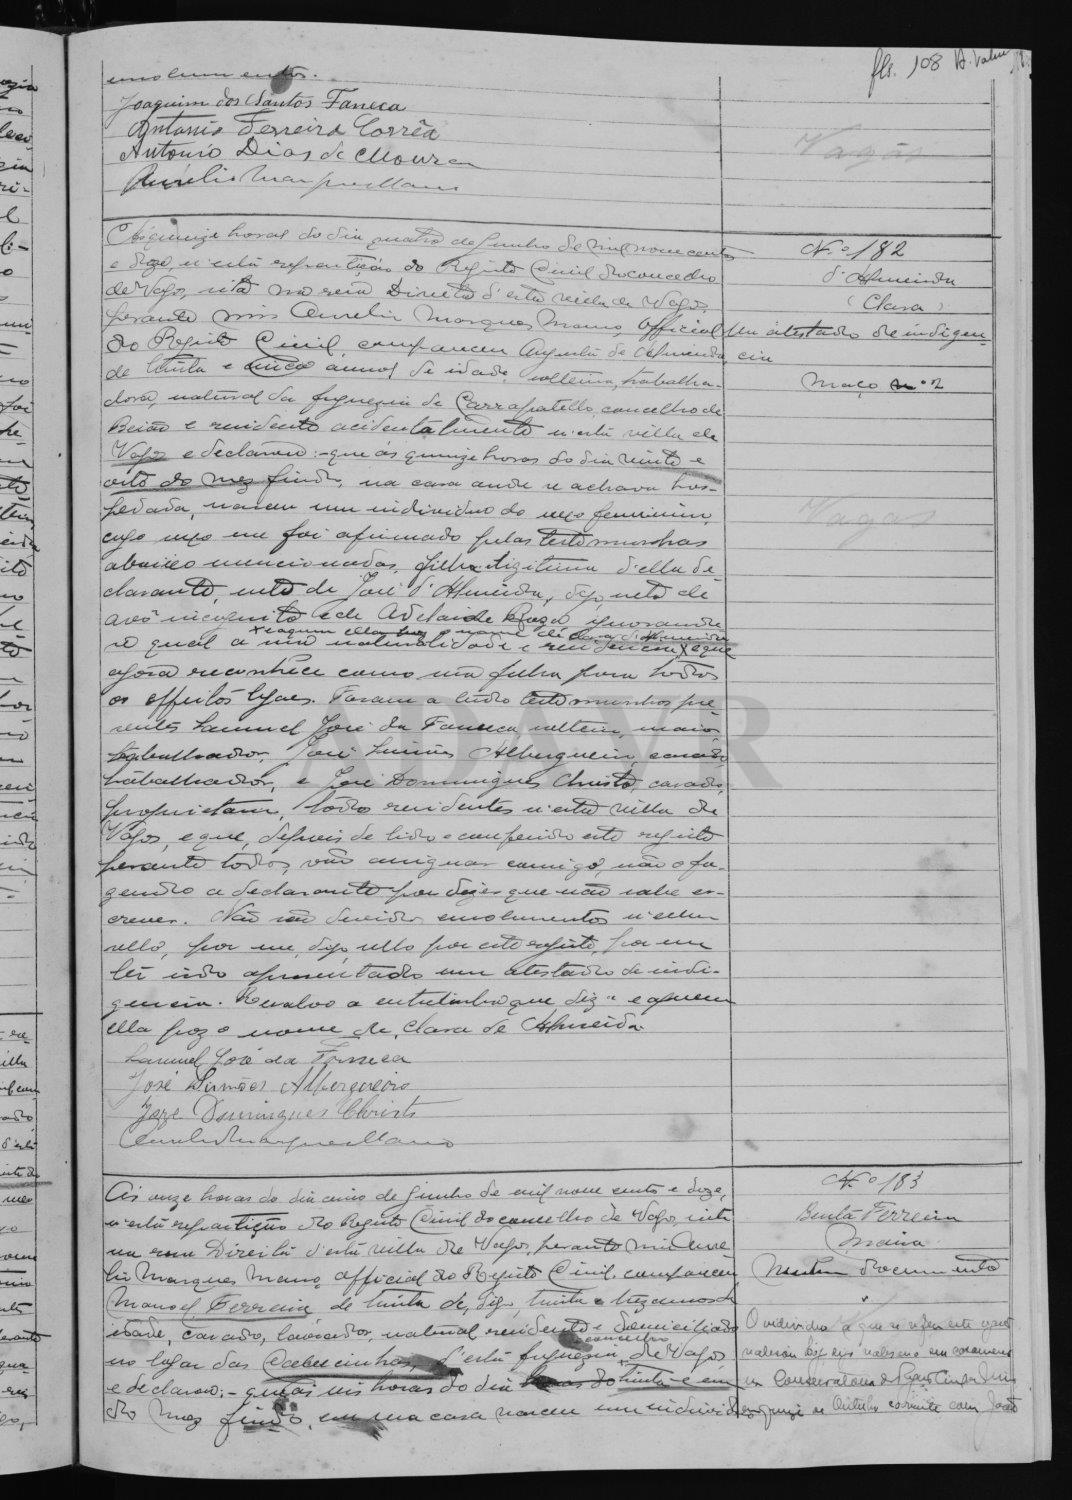 fls. 108
emolumentos.
Joaquim dos Santos Faneca
Antonio Ferreira Corrêa
António Dias de Moura
Aurelio Marques Mano
Vagos
Nº 182
d'Almeida
(Clara)
Um atestado de indigen-
cia
Maço nº 2
Vagos
Ás quinze horas do dia quatro de Junho de mil nove centos
e doze n'esta repartição do Registo Civil do concelho
de Vagos, sita na rua Direita d'esta villa de Vagos,
perante mim Aurelio Marques Mano, official
do Registo Civil, compareceu Augusta de Almeida,
de trinta e cinco annos de idade, solteira, trabalha-
dora, natural da freguezia de Carrapatello, concelho de
Baião e residente acidentalmente n'esta villa de
Vagos e declarou:-que ás quinze horas do dia vinte e
oito do mez findo, na casa onde se achava hos-
pedada, nasceu um individuo do sexo feminino,
cujo sexo me foi afirmado pelas testemunhas
abaixo mencionadas, filha ilegitima d'ella de-
clarante, neta de José d'Almeida, digo neta de
avô incognito e de Adelaide Roza, ignorando
x e a quem ella poz o nome de Clara d'Almeida
o qual a sua naturalidade e residencia x e que
agora reconhece como sua filha para todos
os effeitos legaes. Foram a tudo testemunhas pre-
sentes Samuel José da Fonseca, solteiro, maior
trabalhador, José Simões Albergueiro, casado
trabalhador, e José Domingues Christo, casado,
proprietario, todos residentes n'esta villa de
Vagos, e que, depois de lido e conferido este registo
perante todos, vão assignar comigo, não o fa-
zendo a declarante por dizer que não sabe es-
crever. Não são devidos emolumentos n'em
sello, por me, digo sello por este registo, por me
ter sido apresentado um atestado de indi-
gencia. Resalvo a entrelinha que diz "e a quem
ella poz o nome de Clara de Almeida.
Samuel José da Fonseca
José Simões Albergueiro
Joze Domingues Christo
Aurelio Marques Mano
Nº 183
Benta Ferreira
Maria
Nenhum documento
Ás onze horas do dia cinco de Junho de mil nove centos e doze,
n'esta repartição do Registo Civil do concelho de Vagos, sita
na rua Direita d'esta villa de Vagos, perante mim Aure-
lio Marques Mano, official do Registo Civil, compareceu
Manoel Ferreira de trinta de, digo, trinta e trez annos de
idade, casado, lavrador, natural residente e domiciliado
concelho
no lugar das d'esta freguezia de Vagos
e declarou:- que ás seis horas do dia trinta e um
do mez findo, em sua casa nasceu um individuo
O individuo a que se refere este registo